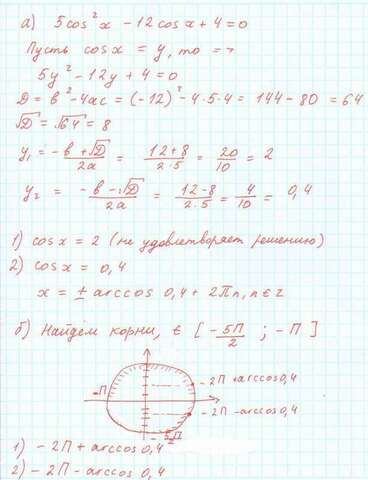 а) 5cos²x - 12cosx + 4 = 0
Пусть cosx = y, то =>
5y² - 12y + 4 = 0
D = в² - 4ас = (-12)² - 4·5·4 = 144 - 80 = 64
√D = √64 = 8
y₁ = -в + √D / 2a = 12+8 / 2·5 = 20/10 = 2
y₂ = -в - √D / 2a = 12-8 / 2·5 = 4/10 = 0,4
1) cosx = 2 (не удовлетворяет решению)
2) cosx = 0,4
x = ± arccos 0,4 + 2Пn, n∈z
б) Найдём корни, ∈ [ -5П/2 ; -П ]
-П
-2П+arccos0,4
-2П-arccos0,4
-5П/2
1) -2П + arccos 0,4
2) -2П - arccos 0,4